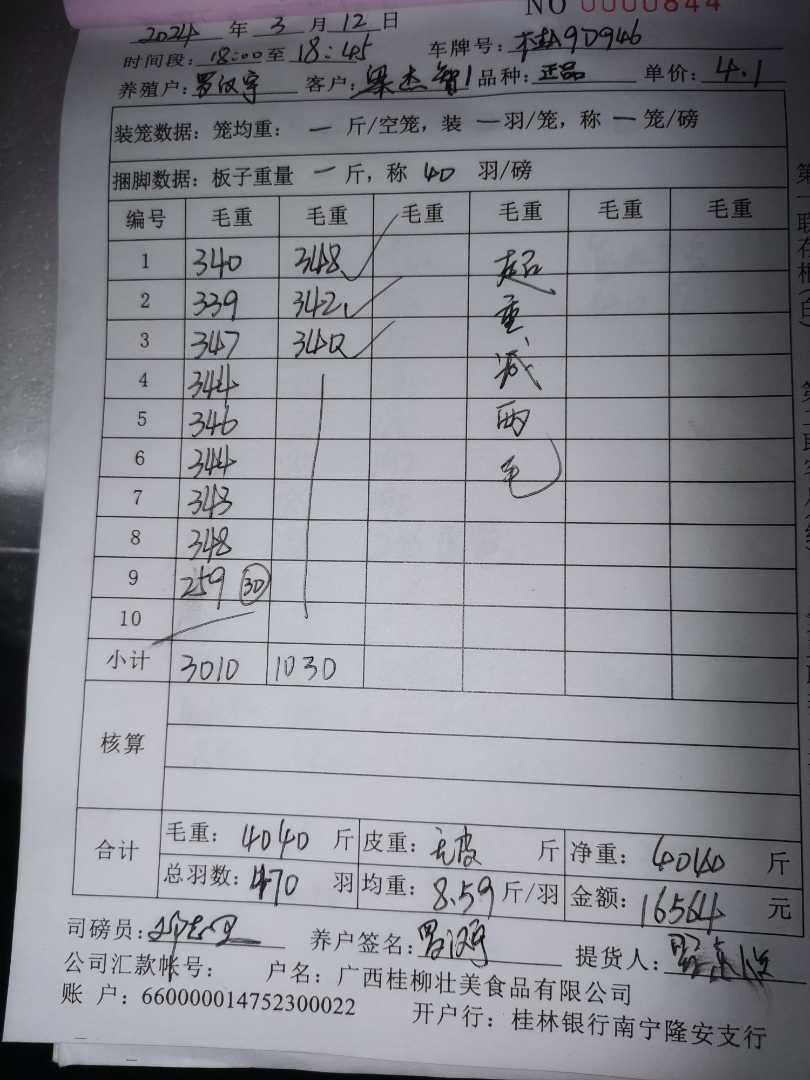 NO 0000844
2024 年 3 月 12 日
时间段: 18:00至 18:45 车牌号: 桂A9D946
养殖户: 罗汉宇 客户: 梁杰智1 品种: 正品 单价: 4.1
装笼数据: 笼均重: 一 斤/空笼, 装 一羽/笼, 称 一 笼/磅
捆脚数据: 板子重量 一 斤, 称 40 羽/磅
编号 毛重 毛重 毛重 毛重 毛重 毛重
1 340 348 超
2 339 342 重
3 347 340 减
4 344 两
5 346 毛
6 344
7 343
8 348
9 259 30
10
小计 3010 1030
核算
合计 毛重: 4040 斤 皮重: 无皮 斤 净重: 4040 斤
总羽数: 470 羽 均重: 8.59 斤/羽 金额: 16564 元
司磅员: 养户签名: 罗汉宇 提货人:
公司汇款帐号: 户名: 广西桂柳壮美食品有限公司
账 户: 660000014752300022 开户行: 桂林银行南宁隆安支行